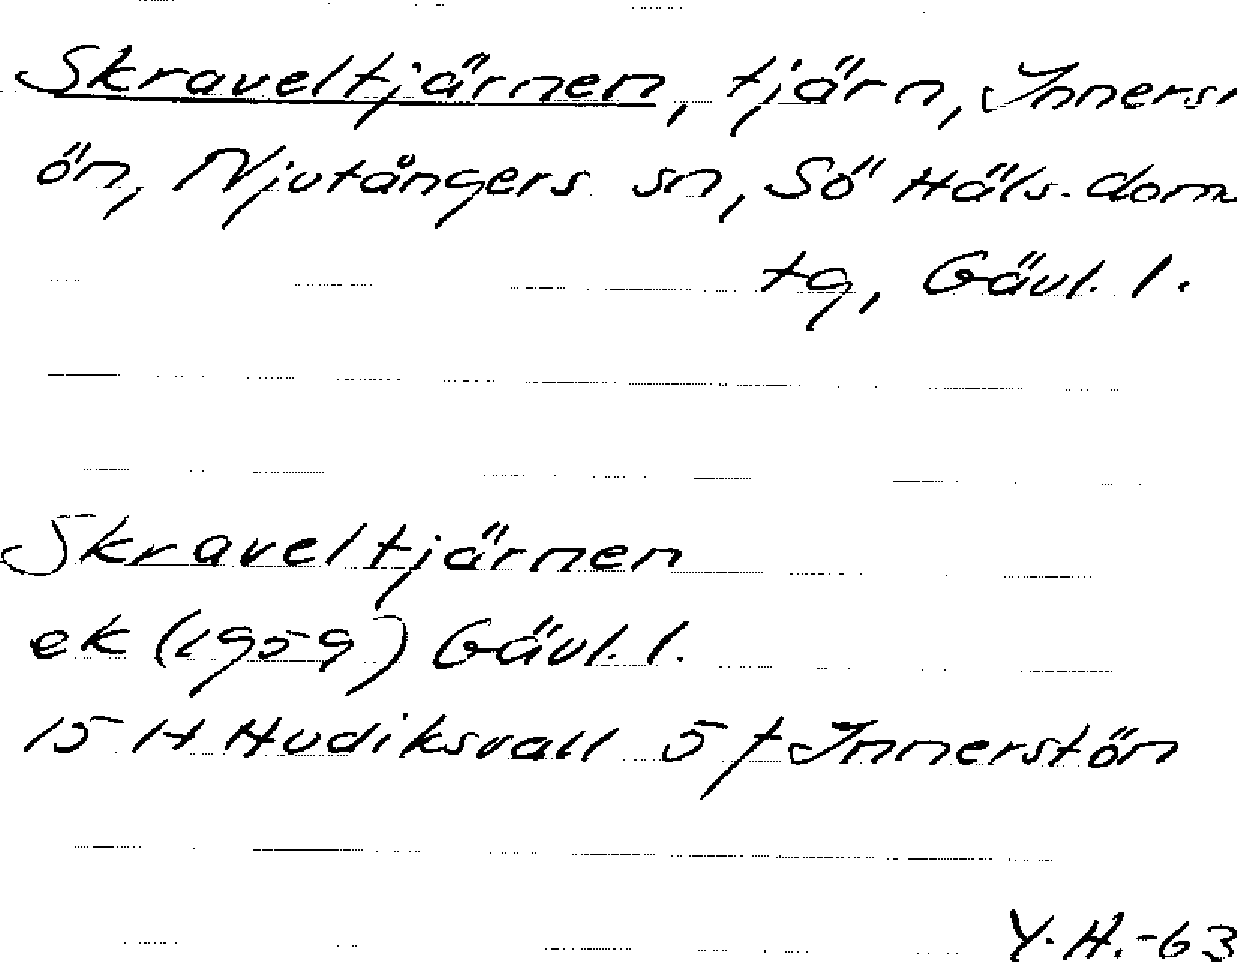 Skraveltjärnen, tjärn, Inners
ön, Njutångers sn, Sö Häls. dom
tg, Gävl. l.
Skraveltjärnen
ek (1959) Gävl. l.
15 H Hudiksvall 5 f Innerstön
Y. H. -63